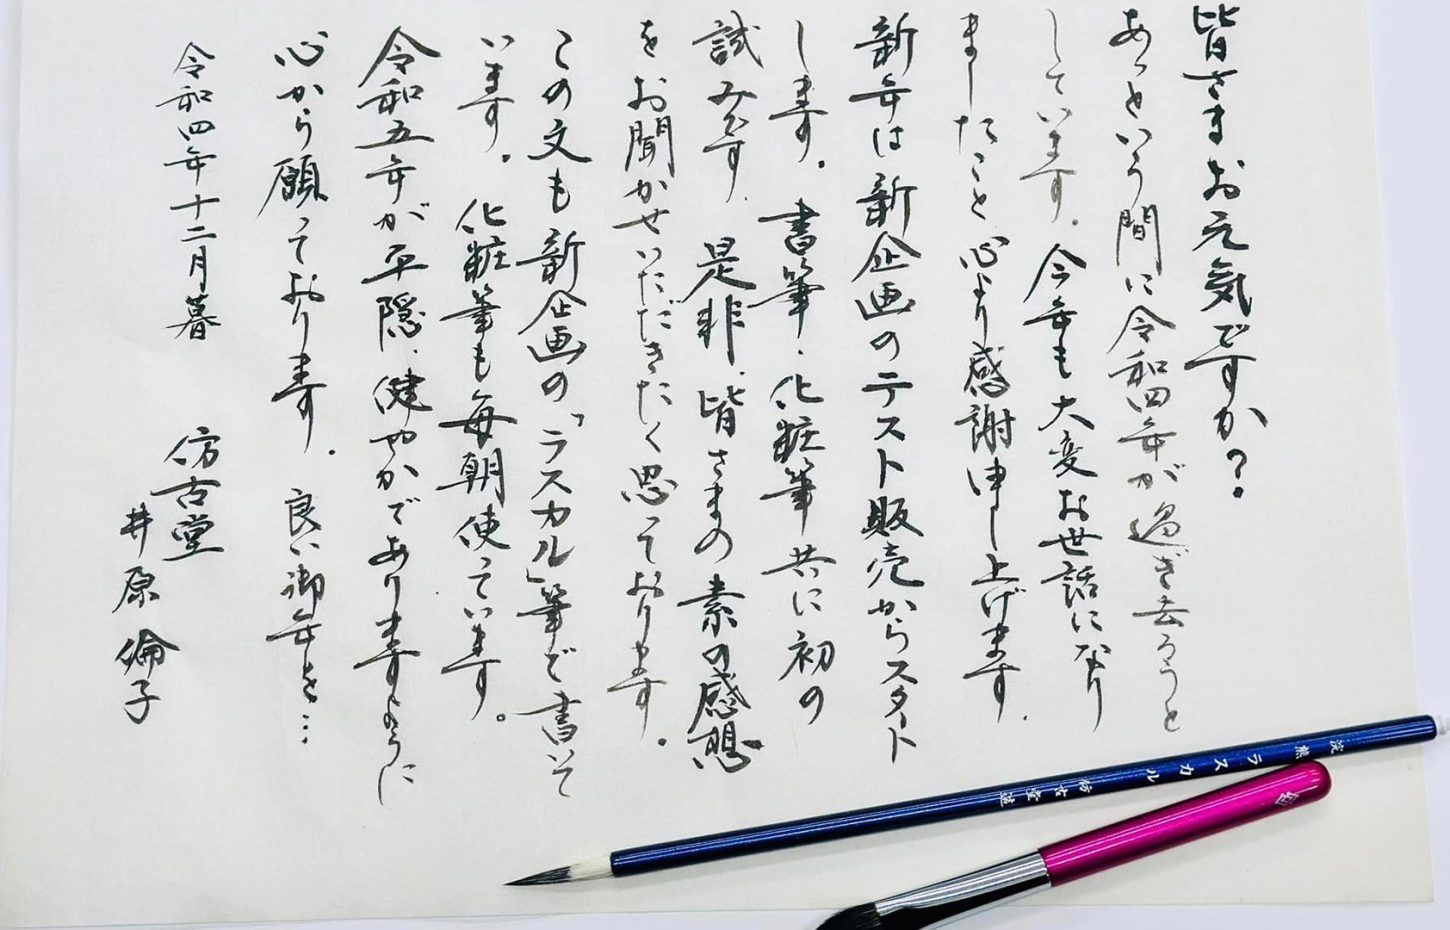 皆さまお元気ですか?
あっという間に令和四年が過ぎ去ろうと
しています。今年も大変お世話になり
ましたこと心より感謝申し上げます.
新年は新企画のテスト販売からスタート
します。書筆、化粧筆共に初の
試みです.是非、皆さまの素の感想
をお聞かせいただきたく思っております。
この文も新企画の「ラスカル」筆で書いて
います。化粧筆も毎朝使っています。
令和五年が平隠、健やかでありますように
心から願っております.良い御年を…
令和四年十二月暮
仿古堂
井原倫子
ラスカル 仿古堂